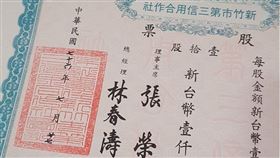 新竹市第三信用合作社
股票
每股金額新台幣壹
壹拾股
新台幣壹仟
理事主席 張榮
總經理 林春濤
中華民國
年 七月